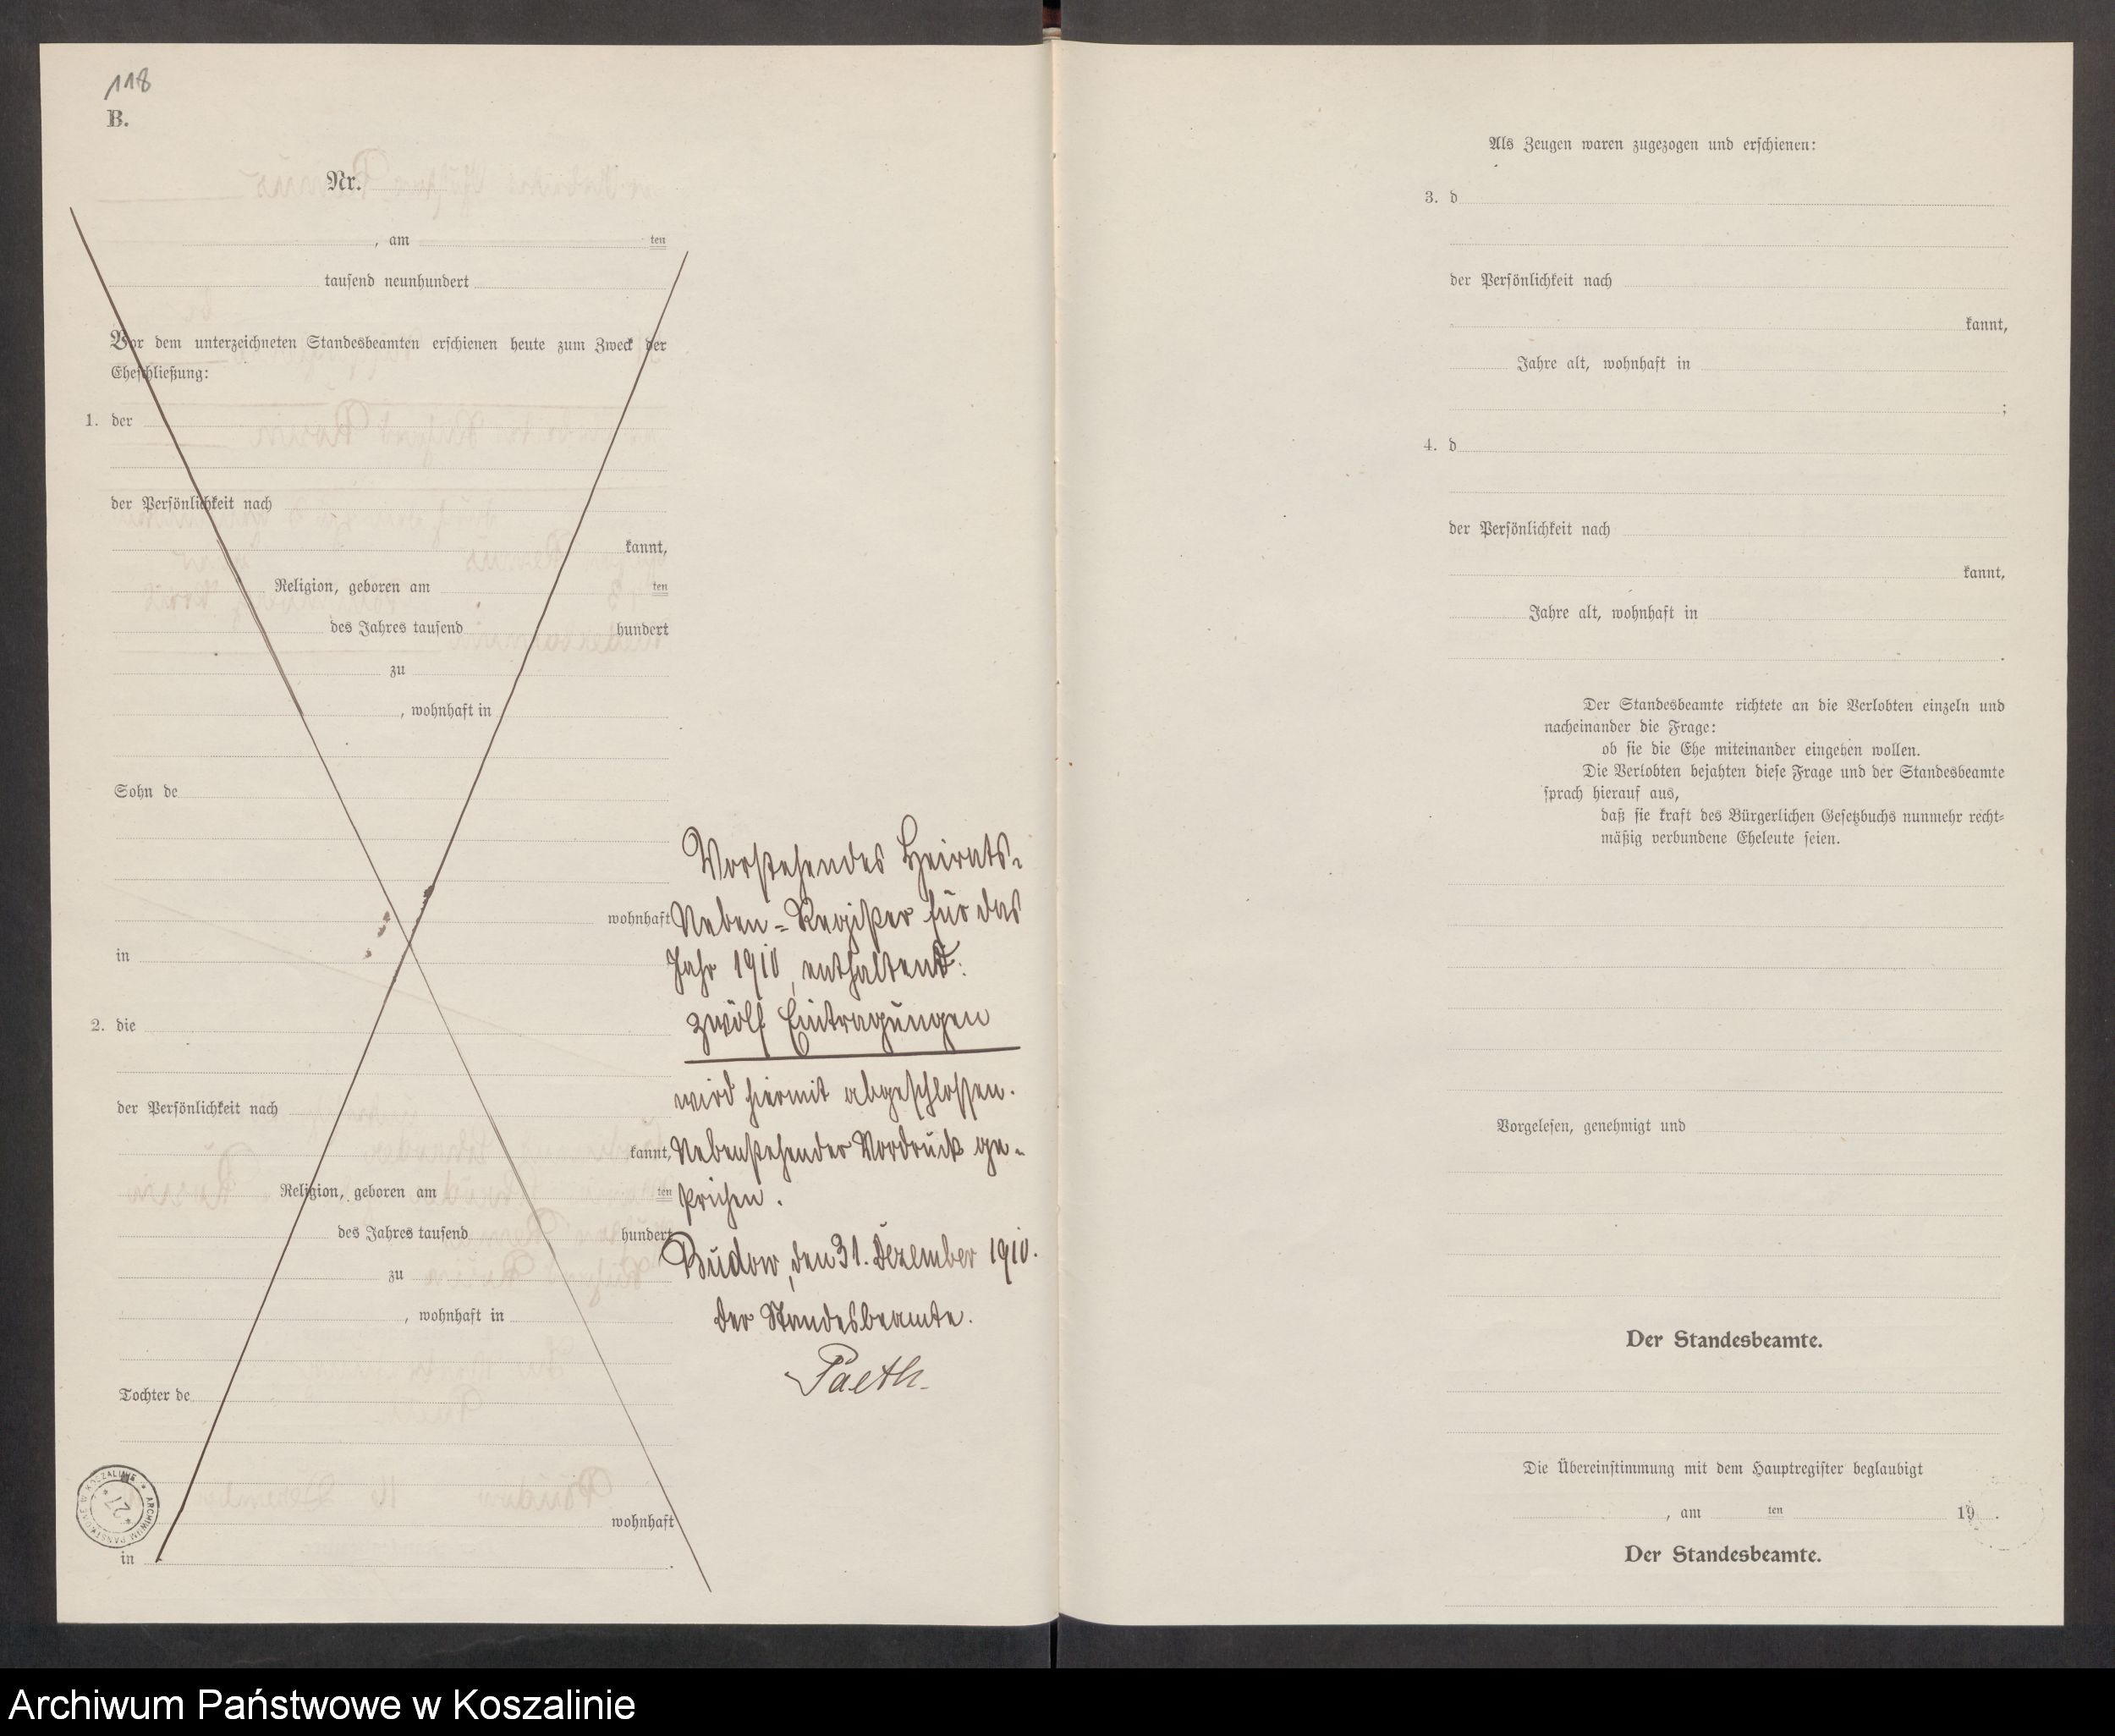 118
B.
Nr.
, am ten
tausend neunhundert
Vor dem unterzeichneten Standesbeamten erschienen heute zum Zweck der
Eheschließung:
1. der
der Persönlichkeit nach
kannt,
Religion, geboren am ten
des Jahres tausend hundert
zu
, wohnhaft in
Sohn de
wohnhaft
in
2. die
der Persönlichkeit nach
kannt,
Religion, geboren am ten
des Jahres tausend hundert
zu
, wohnhaft in
Tochter de
wohnhaft
in .
Vorstehendes Heirats-
Neben-Register für das
Jahr 1910, enthaltend:
zwölf Eintragungen
wird hiermit abgeschlossen.
Nebenstehender Vordruck ge-
strichen.
Budow, den 31. Dezember 1910.
Der Standesbeamte.
Paeth.
ARCHIWUM PAŃSTWOWE W KOSZALINIE
* 27 *
Als Zeugen waren zugezogen und erschienen:
3. d
der Persönlichkeit nach
kannt,
Jahre alt, wohnhaft in
;
4. d
der Persönlichkeit nach
kannt,
Jahre alt, wohnhaft in
.
Der Standesbeamte richtete an die Verlobten einzeln und
nacheinander die Frage:
ob sie die Ehe miteinander eingehen wollen.
Die Verlobten bejahten diese Frage und der Standesbeamte
sprach hierauf aus,
daß sie kraft des Bürgerlichen Gesetzbuchs nunmehr recht-
mäßig verbundene Eheleute seien.
Vorgelesen, genehmigt und
Der Standesbeamte.
Die Übereinstimmung mit dem Hauptregister beglaubigt
, am ten 19 .
Der Standesbeamte.
Archiwum Państwowe w Koszalinie